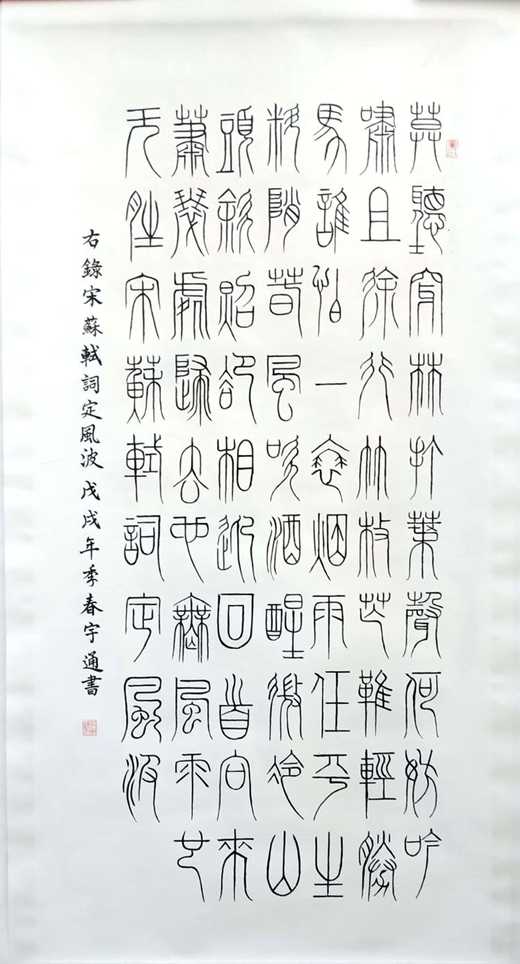 莫聽穿林打葉聲何妨吟
嘯且徐行竹杖芒鞋輕勝
馬誰怕一蓑烟雨任平生
料峭春風吹酒醒微冷山
頭斜照卻相迎回首向來
蕭瑟處歸去也無風雨也
无晴宋蘇軾詞定風波
右錄宋蘇軾詞定風波戊戌年季春宇通書